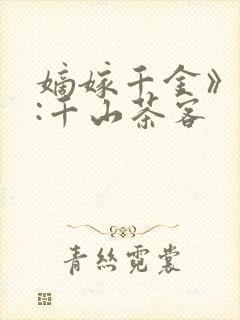 嫡嫁千金》
:千山茶客
青丝霓裳